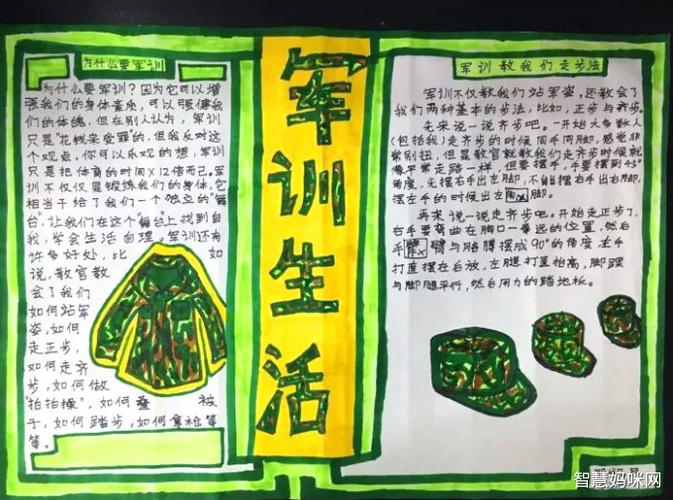 为什么要军训
为什么要军训？因为它可以增
强我们的身体素质，可以强健我
们的体魄，但在别人认为，军训
只是"花钱来受罪"的，但我反对这
个观点，你可以乐观的想，军训
只是把体育的时间×12倍而已，军
训不仅仅是锻炼我们的身体，它
相当于给了我们一个独立的"舞
台"，让我们在这个"舞台"上找到自
我，学会生活自理，军训还有
许多好处，比 如
说，教官教
会了我们
如何站军
姿，如何
走正步，
如何走齐
步，如何做
"拍拍操"，如何叠 被
子，如何踏步，如何拿枪等
等。
军训生活
军训教我们走步法
军训不仅教我们站军姿，还教会了
我们两种基本的步法，比如，正步与齐步。
先来说一说齐步吧。一开始大多数人
(包括我)走齐步的时候同手同脚，感觉非
常别扭，但是教官就教我们走齐步时候就
像平常走路一样，但要摆手，手要摆到45°
角度，先摆右手出左脚，不能摆右手出右脚，
摆左手的时候出左脚。
再来说一说走齐步吧。开始走正步了，
右手要弯曲在胸口一拳远的位置，然后
手臂与胳膊摆成90°的角度，左手
打直摆在后放，左腿打直抬高，脚踝
与脚腿平行，然后用力的踏地板。
智慧妈咪网